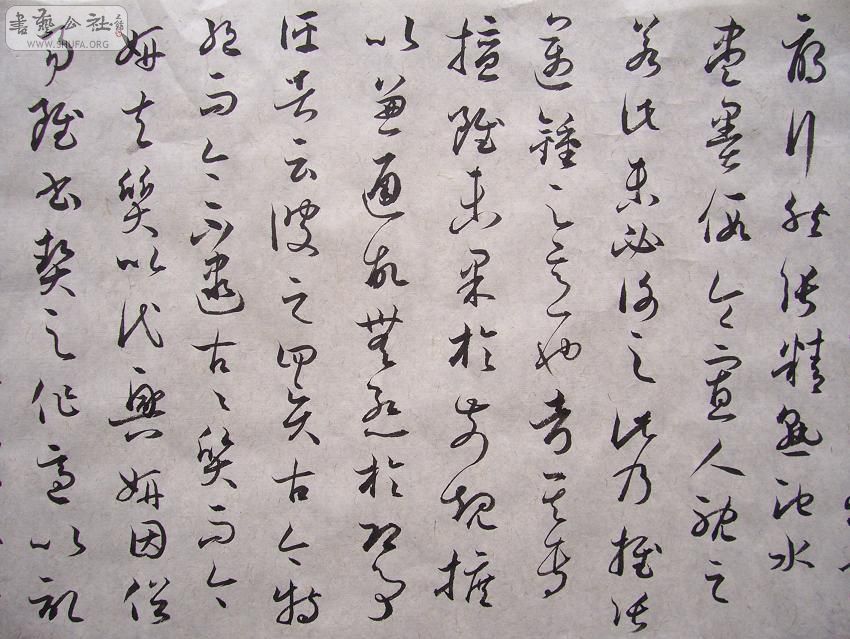 書藝公社
WWW.SHUFA.ORG
雁行然張精熟池水
盡墨假令寡人耽之
若此未必謝之此乃推張
邁鍾之意也考其專
擅雖未果於前規摭
以兼通故無慚於即事
評者云彼之四賢古今特
絕而今不逮古〻質而今
妍夫質以代興妍因俗
易雖書契之作適以記